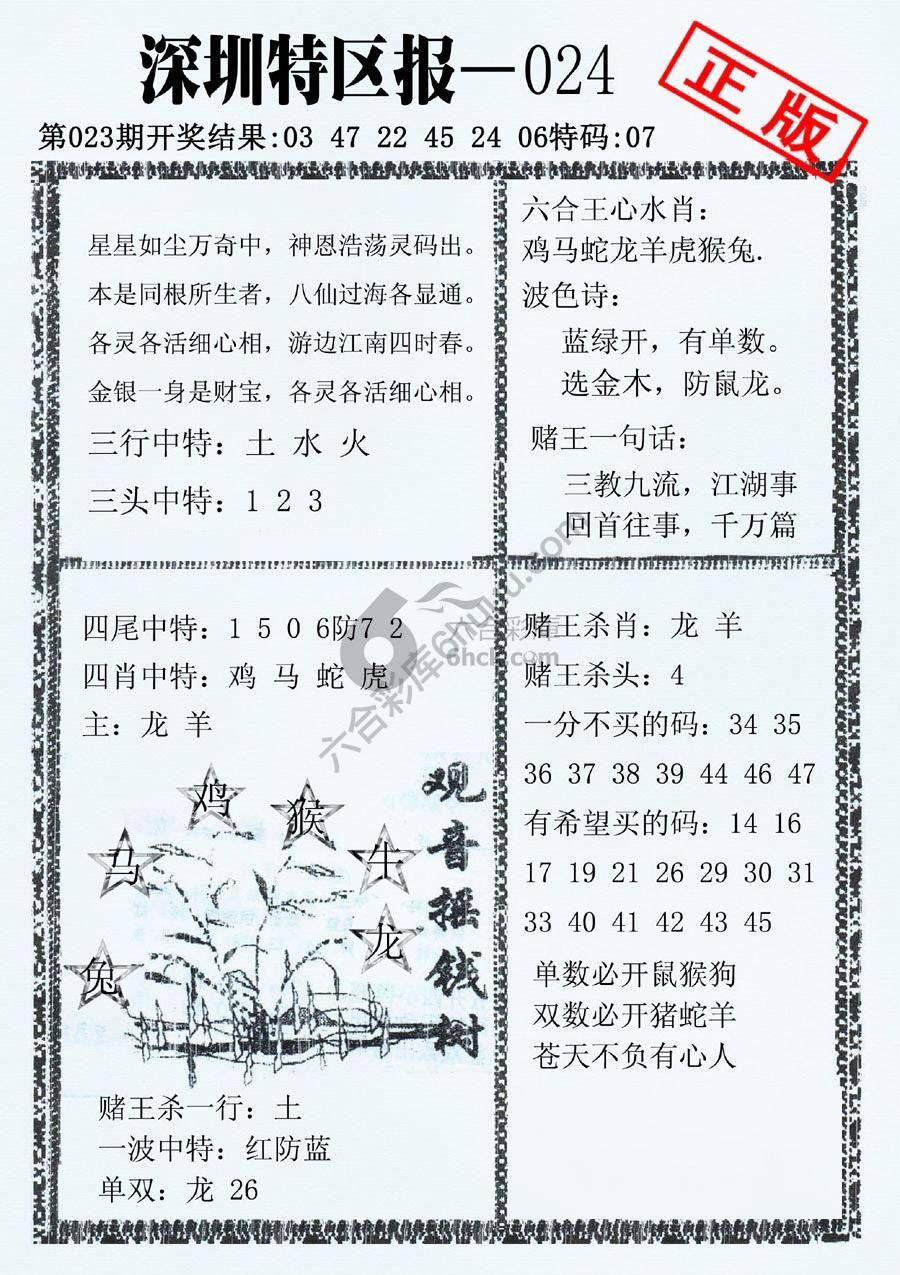 深圳特区报—024
正版
第023期开奖结果:03 47 22 45 24 06特码:07
星星如尘万奇中，神恩浩荡灵码出。
本是同根所生者，八仙过海各显通。
各灵各活细心相，游边江南四时春。
金银一身是财宝，各灵各活细心相。
三行中特：土 水 火
三头中特：1 2 3
六合王心水肖：
鸡马蛇龙羊虎猴兔.
波色诗：
蓝绿开，有单数。
选金木，防鼠龙。
赌王一句话：
三教九流，江湖事
回首往事，千万篇
四尾中特：1 5 0 6防7 2
四肖中特：鸡 马 蛇 虎
主：龙 羊
鸡
猴
马
牛
龙
兔
观音摇钱树
赌王杀一行：土
一波中特：红防蓝
单双：龙 26
赌王杀肖：龙 羊
赌王杀头：4
一分不买的码：34 35
36 37 38 39 44 46 47
有希望买的码：14 16
17 19 21 26 29 30 31
33 40 41 42 43 45
单数必开鼠猴狗
双数必开猪蛇羊
苍天不负有心人
六合彩库
6hck.com
六合彩库6hutu.com